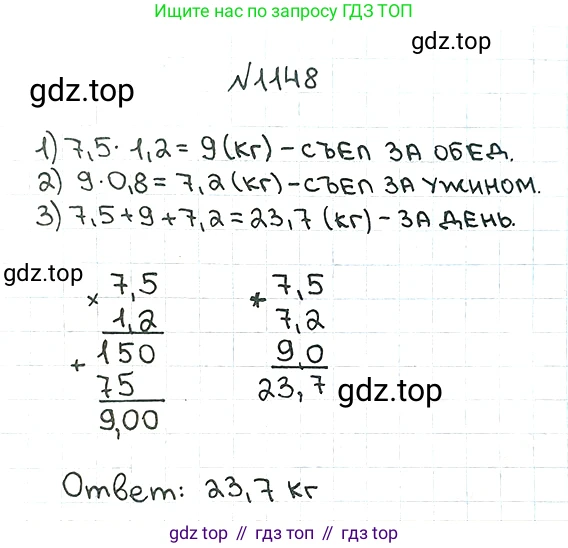 Ищите нас по запросу ГДЗ ТОП
gdz.top
№1148
gdz.top
1) 7,5 · 1,2 = 9 (кг) – съел за обед.
2) 9 · 0,8 = 7,2 (кг) – съел за ужином.
3) 7,5 + 9 + 7,2 = 23,7 (кг) – за день.
gdz.top
× 7,5
1,2
+ 150
75
9,00
+ 7,5
7,2
9,0
23,7
gdz.top
Ответ: 23,7 кг
gdz.top // гдз топ // gdz.top